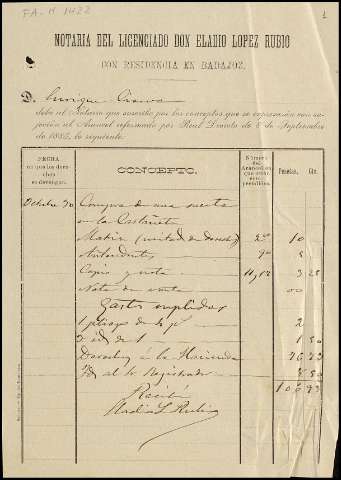 FA-H 1422
1
NOTARIA DEL LICENCIADO DON ELADIO LOPEZ RUBIO
CON RESIDENCIA EN BADAJOZ.
D. Enrique
debe al Notario que suscribe por los conceptos que se expresarán con su-
jeción al Arancel reformado por Real Decreto de 6 de Septiembre
de 1885, lo siguiente.
FECHA en que los derechos se devengan. CONCEPTO. Número del Arancel en que están comprendidos. Pesetas. Cts.
Octubre 30 Compra de una suerte
en la Castañeta
Matriz (mitad de derechos) 2º 10
Antecedentes 9º 5
Copia y nota 11, 12 3 25
Nota de venta
Gastos suplidos
1 pliego de 2
2 id de 1 1 50
Derechos a la Hacienda
Id al Registrador 50
Recibí
Eladio L Rubio